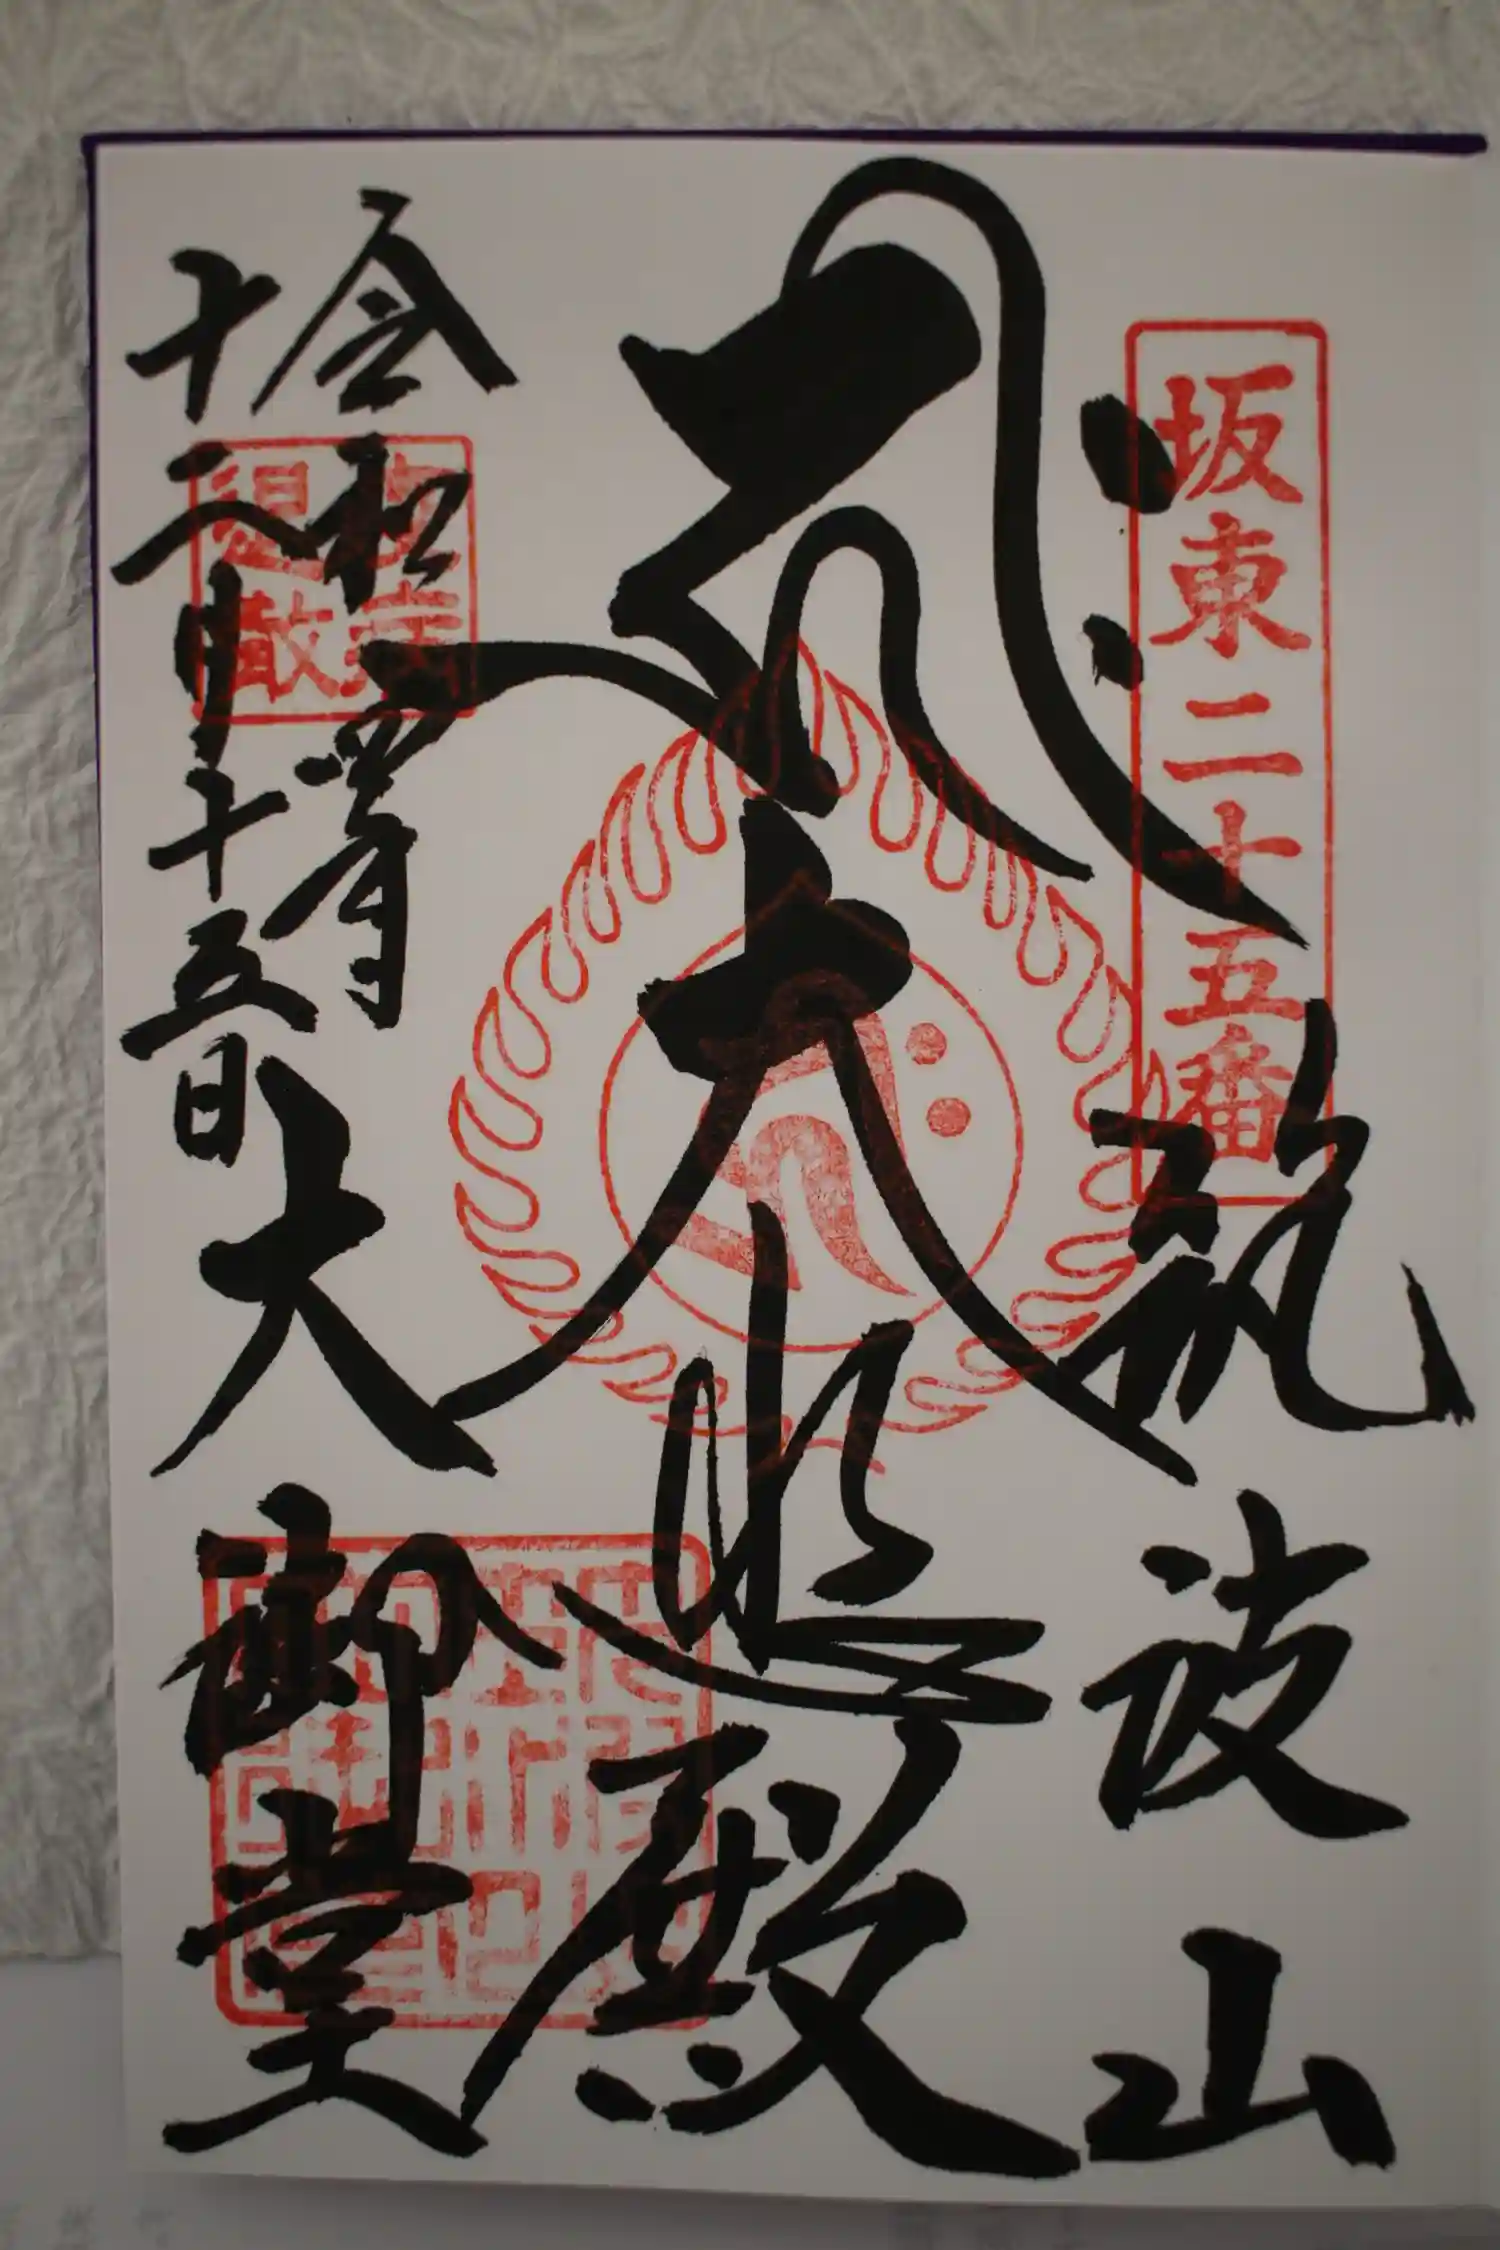 坂東二十五番
筑波山
大悲殿
大御堂
令和四年
十二月十五日